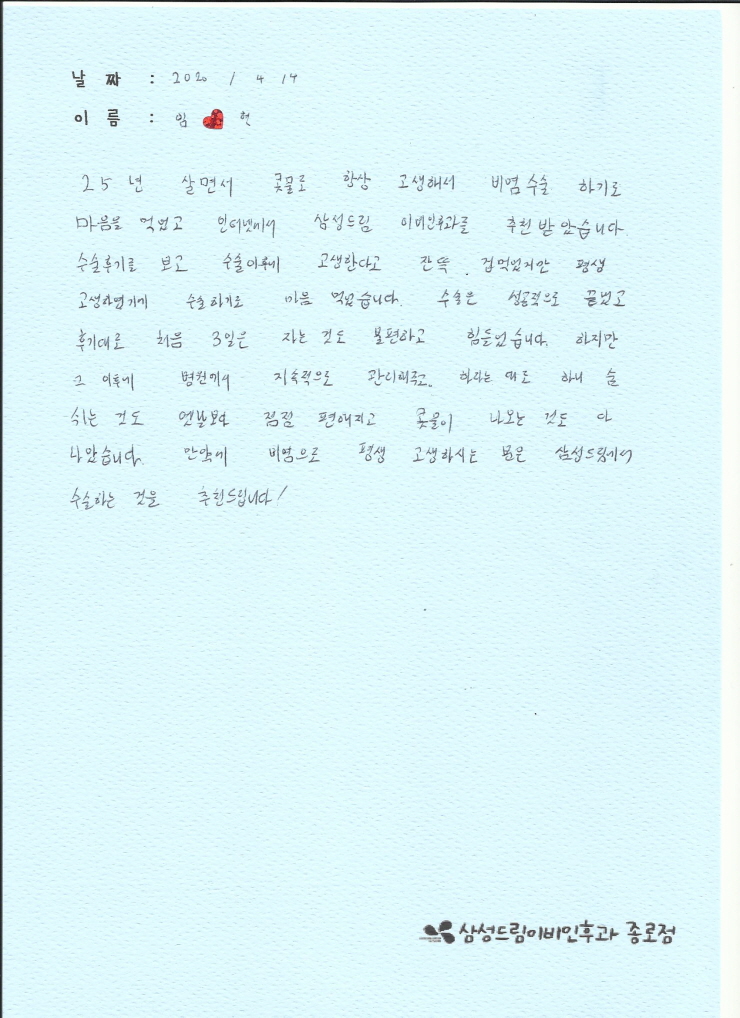 날 짜 : 2020 / 4 14
이 름 : 임 현
25년 살면서 콧물로 항상 고생해서 비염수술 하기로
마음을 먹었고 인터넷에서 삼성드림 이비인후과를 추천 받았습니다.
수술후기를 보고 수술이후에 고생한다고 잔뜩 겁먹었지만 평생
고생하였기에 수술하기로 마음 먹었습니다. 수술은 성공적으로 끝났고
후기대로 처음 3일은 자는 것도 불편하고 힘들었습니다. 하지만
그 이후에 병원에서 지속적으로 관리해주고 하라는 대로 하니 숨
쉬는 것도 옛날보다 점점 편해지고 콧물이 나오는 것도 다
나았습니다. 만약에 비염으로 평생 고생하시는 분은 삼성드림에서
수술하는 것을 추천드립니다!
삼성드림이비인후과 종로점